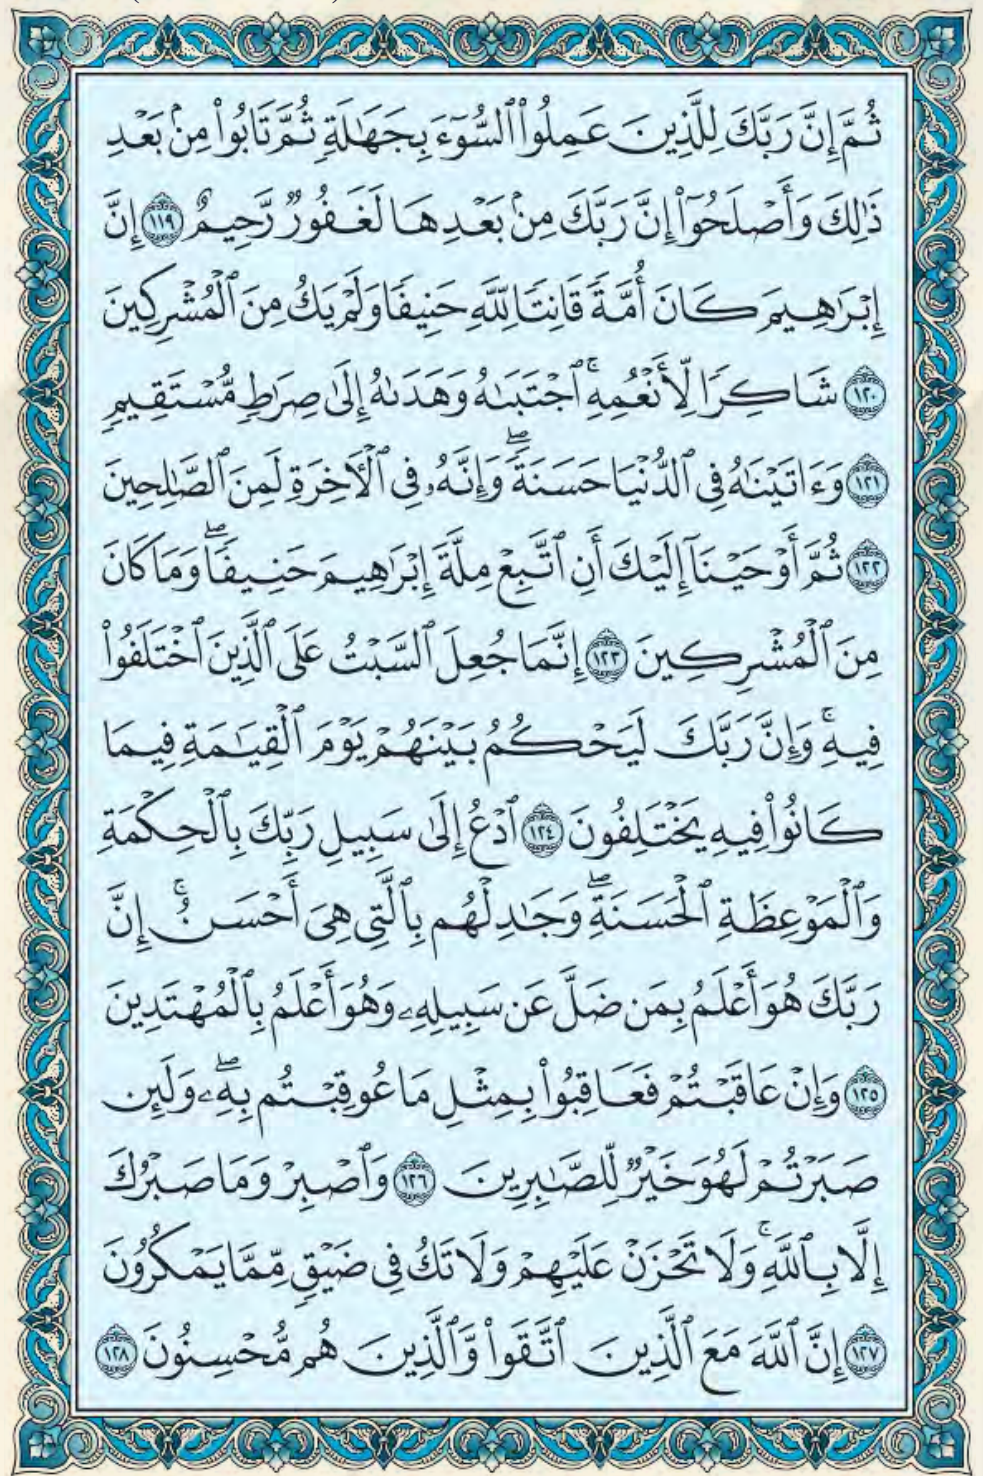 ثُمَّ إِنَّ رَبَّكَ لِلَّذِينَ عَمِلُوا۟ ٱلسُّوٓءَ بِجَهَـٰلَةٍ ثُمَّ تَابُوا۟ مِنۢ بَعْدِ
ذَٰلِكَ وَأَصْلَحُوٓا۟ إِنَّ رَبَّكَ مِنۢ بَعْدِهَا لَغَفُورٌ رَّحِيمٌ ١١٩ إِنَّ
إِبْرَٰهِيمَ كَانَ أُمَّةً قَانِتًا لِّلَّهِ حَنِيفًا وَلَمْ يَكُ مِنَ ٱلْمُشْرِكِينَ
١٢٠ شَاكِرًا لِّأَنْعُمِهِ ۚ ٱجْتَبَىٰهُ وَهَدَىٰهُ إِلَىٰ صِرَٰطٍ مُّسْتَقِيمٍ
١٢١ وَءَاتَيْنَـٰهُ فِى ٱلدُّنْيَا حَسَنَةً ۖ وَإِنَّهُۥ فِى ٱلْـَٔاخِرَةِ لَمِنَ ٱلصَّـٰلِحِينَ
١٢٢ ثُمَّ أَوْحَيْنَآ إِلَيْكَ أَنِ ٱتَّبِعْ مِلَّةَ إِبْرَٰهِيمَ حَنِيفًا ۖ وَمَا كَانَ
مِنَ ٱلْمُشْرِكِينَ ١٢٣ إِنَّمَا جُعِلَ ٱلسَّبْتُ عَلَى ٱلَّذِينَ ٱخْتَلَفُوا۟
فِيهِ ۚ وَإِنَّ رَبَّكَ لَيَحْكُمُ بَيْنَهُمْ يَوْمَ ٱلْقِيَـٰمَةِ فِيمَا
كَانُوا۟ فِيهِ يَخْتَلِفُونَ ١٢٤ ٱدْعُ إِلَىٰ سَبِيلِ رَبِّكَ بِٱلْحِكْمَةِ
وَٱلْمَوْعِظَةِ ٱلْحَسَنَةِ ۖ وَجَـٰدِلْهُم بِٱلَّتِى هِىَ أَحْسَنُ ۚ إِنَّ
رَبَّكَ هُوَ أَعْلَمُ بِمَن ضَلَّ عَن سَبِيلِهِۦ وَهُوَ أَعْلَمُ بِٱلْمُهْتَدِينَ
١٢٥ وَإِنْ عَاقَبْتُمْ فَعَاقِبُوا۟ بِمِثْلِ مَا عُوقِبْتُم بِهِۦ ۖ وَلَئِن
صَبَرْتُمْ لَهُوَ خَيْرٌ لِّلصَّـٰبِرِينَ ١٢٦ وَٱصْبِرْ وَمَا صَبْرُكَ
إِلَّا بِٱللَّهِ ۚ وَلَا تَحْزَنْ عَلَيْهِمْ وَلَا تَكُ فِى ضَيْقٍ مِّمَّا يَمْكُرُونَ
١٢٧ إِنَّ ٱللَّهَ مَعَ ٱلَّذِينَ ٱتَّقَوا۟ وَّٱلَّذِينَ هُم مُّحْسِنُونَ ١٢٨